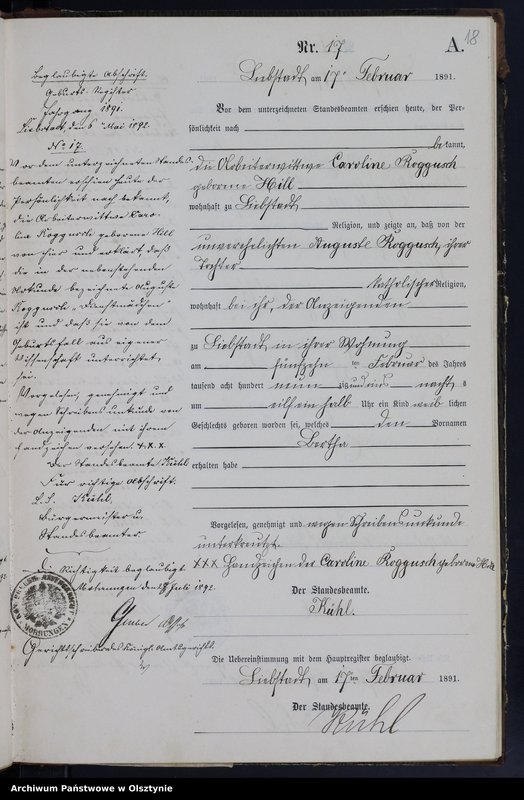 18
Nr. 17
A.
Liebstadt, am 17ten Februar 1891.
Vor dem unterzeichneten Standesbeamten erschien heute, der Per-
sönlichkeit nach
bekannt,
die Arbeiterwittwe Caroline Roggusch
geborene Hill
wohnhaft zu Liebstadt
Religion, und zeigte an, daß von der
unverehelichten Auguste Roggusch, ihrer
Tochter
katholischer Religion,
wohnhaft bei ihr, der Anzeigenden
zu Liebstadt, in ihrer Wohnung
am fünfzehnten Februar des Jahres
tausend acht hundert neunzig und eins nachts
um eilf ein halb Uhr ein Kind weiblichen
Geschlechts geboren worden sei, welches den Vornamen
Bertha
erhalten habe
Vorgelesen, genehmigt und wegen Schreibensunkunde
unterkreuzt.
XXX Handzeichen der Caroline Roggusch geborene Hill
Der Standesbeamte.
Kühl.
Die Uebereinstimmung mit dem Hauptregister beglaubigt.
Liebstadt, am 17ten Februar 1891.
Der Standesbeamte.
Kühl
Beglaubigte Abschrift.
Geburts-Register
Jahrgang 1891.
Liebstadt, den 6ten Mai 1892.
No 17.
Vor dem unterzeichneten Standes-
beamten erschien heute der
Persönlichkeit nach bekannt,
die Arbeiterwittwe Caro-
line Roggusch geborene Hill
von hier und erklärt, daß
die in der nebenstehenden
Urkunde bezeichnete Auguste
Roggusch, "Dienstmädchen"
ist und daß sie von dem
Geburtsfall aus eigener
Wissenschaft unterrichtet
sei.
Vorgelesen, genehmigt und
wegen Schreibensunkunde von
der Anzeigenden mit ihrem
Handzeichen versehen XXX.
Der Standesbeamte Kühl
Für richtige Abschrift.
L.S. Kühl,
Bürgermeister u.
Standesbeamter
Die Richtigkeit beglaubigt
Mohrungen, den Juli 1892.
Gerichtsschreiber des Königl. Amtsgerichts.
MOHRUNGEN
Archiwum Państwowe w Olsztynie